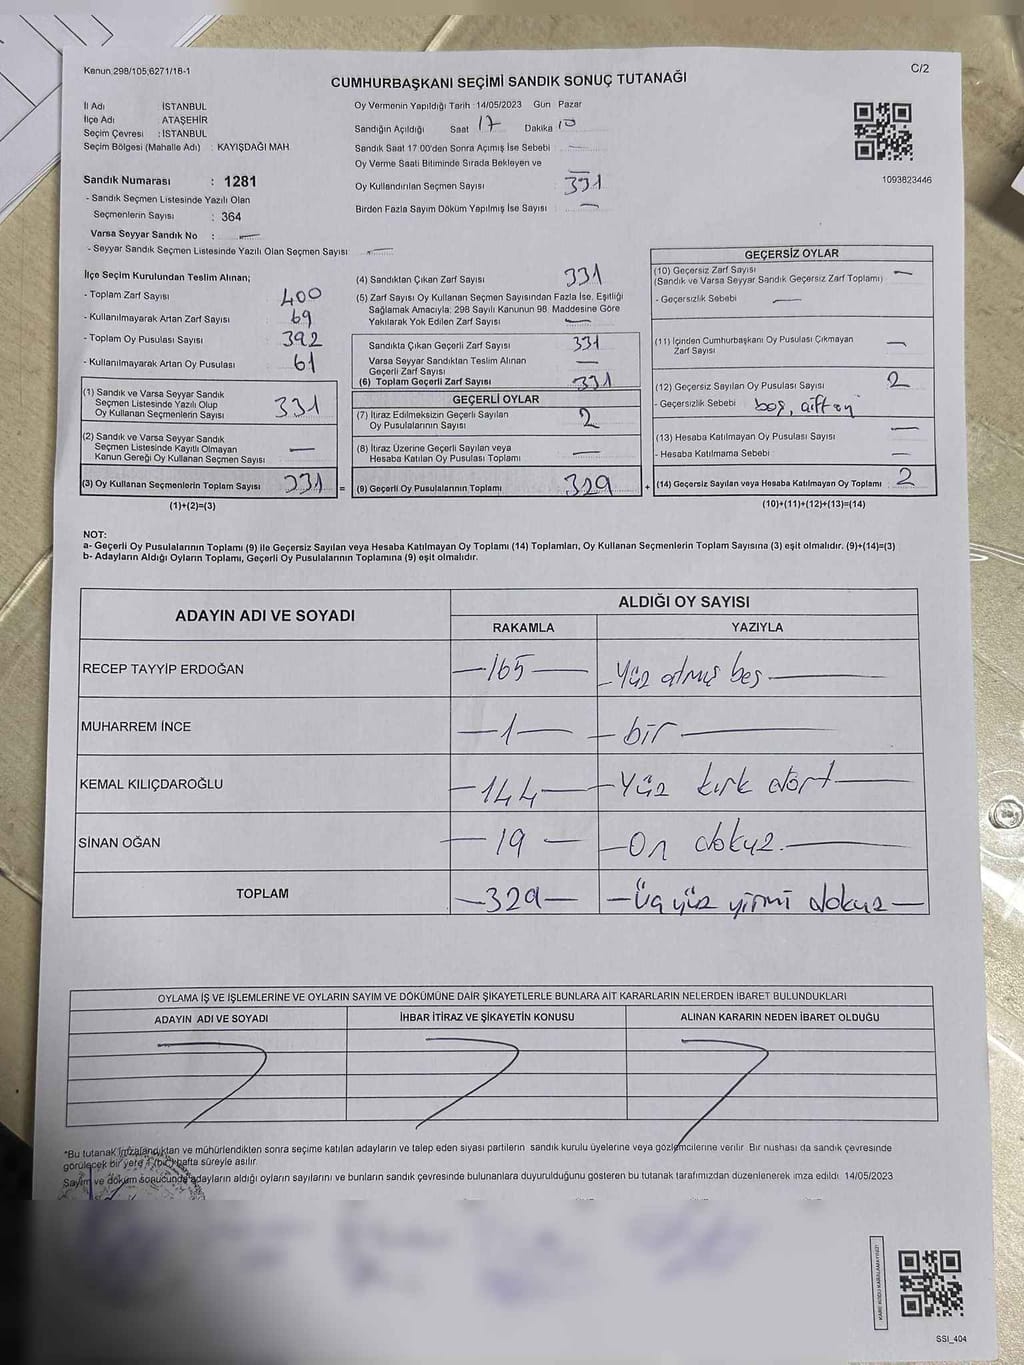 Kanun 298/105,6271/16-1
C/2
CUMHURBAŞKANI SEÇİMİ SANDIK SONUÇ TUTANAĞI
İl Adı : İSTANBUL
İlçe Adı : ATAŞEHİR
Seçim Çevresi : İSTANBUL
Seçim Bölgesi (Mahalle Adı) : KAYIŞDAĞI MAH.
Sandık Numarası : 1281
- Sandık Seçmen Listesinde Yazılı Olan
Seçmenlerin Sayısı : 364
Varsa Seyyar Sandık No : —
- Seyyar Sandık Seçmen Listesinde Yazılı Olan Seçmen Sayısı : —
Oy Vermenin Yapıldığı Tarih : 14/05/2023 Gün : Pazar
Sandığın Açıldığı Saat 17 Dakika 10
Sandık Saat 17:00'den Sonra Açımış İse Sebebi —
Oy Verme Saati Bitiminde Sırada Bekleyen ve
Oy Kullandırılan Seçmen Sayısı 331
Birden Fazla Sayım Döküm Yapılmış İse Sayısı —
1093823446
İlçe Seçim Kurulundan Teslim Alınan;
- Toplam Zarf Sayısı 400
- Kullanılmayarak Artan Zarf Sayısı 69
- Toplam Oy Pusulası Sayısı 392
- Kullanılmayarak Artan Oy Pusulası 61
(1) Sandık ve Varsa Seyyar Sandık
Seçmen Listesinde Yazılı Olup
Oy Kullanan Seçmenlerin Sayısı 331
(2) Sandık ve Varsa Seyyar Sandık
Seçmen Listesinde Kayıtlı Olmayan
Kanun Gereği Oy Kullanan Seçmen Sayısı —
(3) Oy Kullanan Seçmenlerin Toplam Sayısı 331 =
(1)+(2)=(3)
(4) Sandıktan Çıkan Zarf Sayısı 331
(5) Zarf Sayısı Oy Kullanan Seçmen Sayısından Fazla İse, Eşitliği
Sağlamak Amacıyla; 298 Sayılı Kanunun 98. Maddesine Göre
Yakılarak Yok Edilen Zarf Sayısı —
Sandıkta Çıkan Geçerli Zarf Sayısı 331
Varsa Seyyar Sandıktan Teslim Alınan
Geçerli Zarf Sayısı —
(6) Toplam Geçerli Zarf Sayısı 331
GEÇERLİ OYLAR
(7) İtiraz Edilmeksizin Geçerli Sayılan
Oy Pusulalarının Sayısı 2
(8) İtiraz Üzerine Geçerli Sayılan veya
Hesaba Katılan Oy Pusulası Toplamı —
(9) Geçerli Oy Pusulalarının Toplamı 329 +
GEÇERSİZ OYLAR
(10) Geçersiz Zarf Sayısı —
(Sandık ve Varsa Seyyar Sandık Geçersiz Zarf Toplamı)
- Geçersizlik Sebebi —
(11) İçinden Cumhurbaşkanı Oy Pusulası Çıkmayan
Zarf Sayısı —
(12) Geçersiz Sayılan Oy Pusulası Sayısı 2
- Geçersizlik Sebebi boş, çift oy
(13) Hesaba Katılmayan Oy Pusulası Sayısı —
- Hesaba Katılmama Sebebi —
(14) Geçersiz Sayılan veya Hesaba Katılmayan Oy Toplamı 2
(10)+(11)+(12)+(13)=(14)
NOT:
a- Geçerli Oy Pusulalarının Toplamı (9) ile Geçersiz Sayılan veya Hesaba Katılmayan Oy Toplamı (14) Toplamları, Oy Kullanan Seçmenlerin Toplam Sayısına (3) eşit olmalıdır. (9)+(14)=(3)
b- Adayların Aldığı Oyların Toplamı, Geçerli Oy Pusulalarının Toplamına (9) eşit olmalıdır.
ADAYIN ADI VE SOYADI ALDIĞI OY SAYISI
RAKAMLA YAZIYLA
RECEP TAYYİP ERDOĞAN —165— —Yüz atmış beş—
MUHARREM İNCE —1— —bir—
KEMAL KILIÇDAROĞLU —144— —Yüz kırk dört—
SİNAN OĞAN —19— —On dokuz—
TOPLAM —329— —Üçyüz yirmi dokuz—
OYLAMA İŞ VE İŞLEMLERİNE VE OYLARIN SAYIM VE DÖKÜMÜNE DAİR ŞİKAYETLERLE BUNLARA AİT KARARLARIN NELERDEN İBARET BULUNDUKLARI
ADAYIN ADI VE SOYADI İHBAR İTİRAZ VE ŞİKAYETİN KONUSU ALINAN KARARIN NEDEN İBARET OLDUĞU
*Bu tutanak imzalandıktan ve mühürlendikten sonra seçime katılan adayların ve talep eden siyasi partilerin sandık kurulu üyelerine veya gözlemcilerine verilir. Bir nushası da sandık çevresinde
görülecek bir yere 1 (bir) hafta süreyle asılır.
Sayım ve döküm sonucunda adayların aldığı oyların sayılarını ve bunların sandık çevresinde bulunanlara duyurulduğunu gösteren bu tutanak tarafımızdan düzenlenerek imza edildi. 14/05/2023
KARE KODU KARALAMAYINIZ!
SSI_404